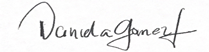 Danida Gomez